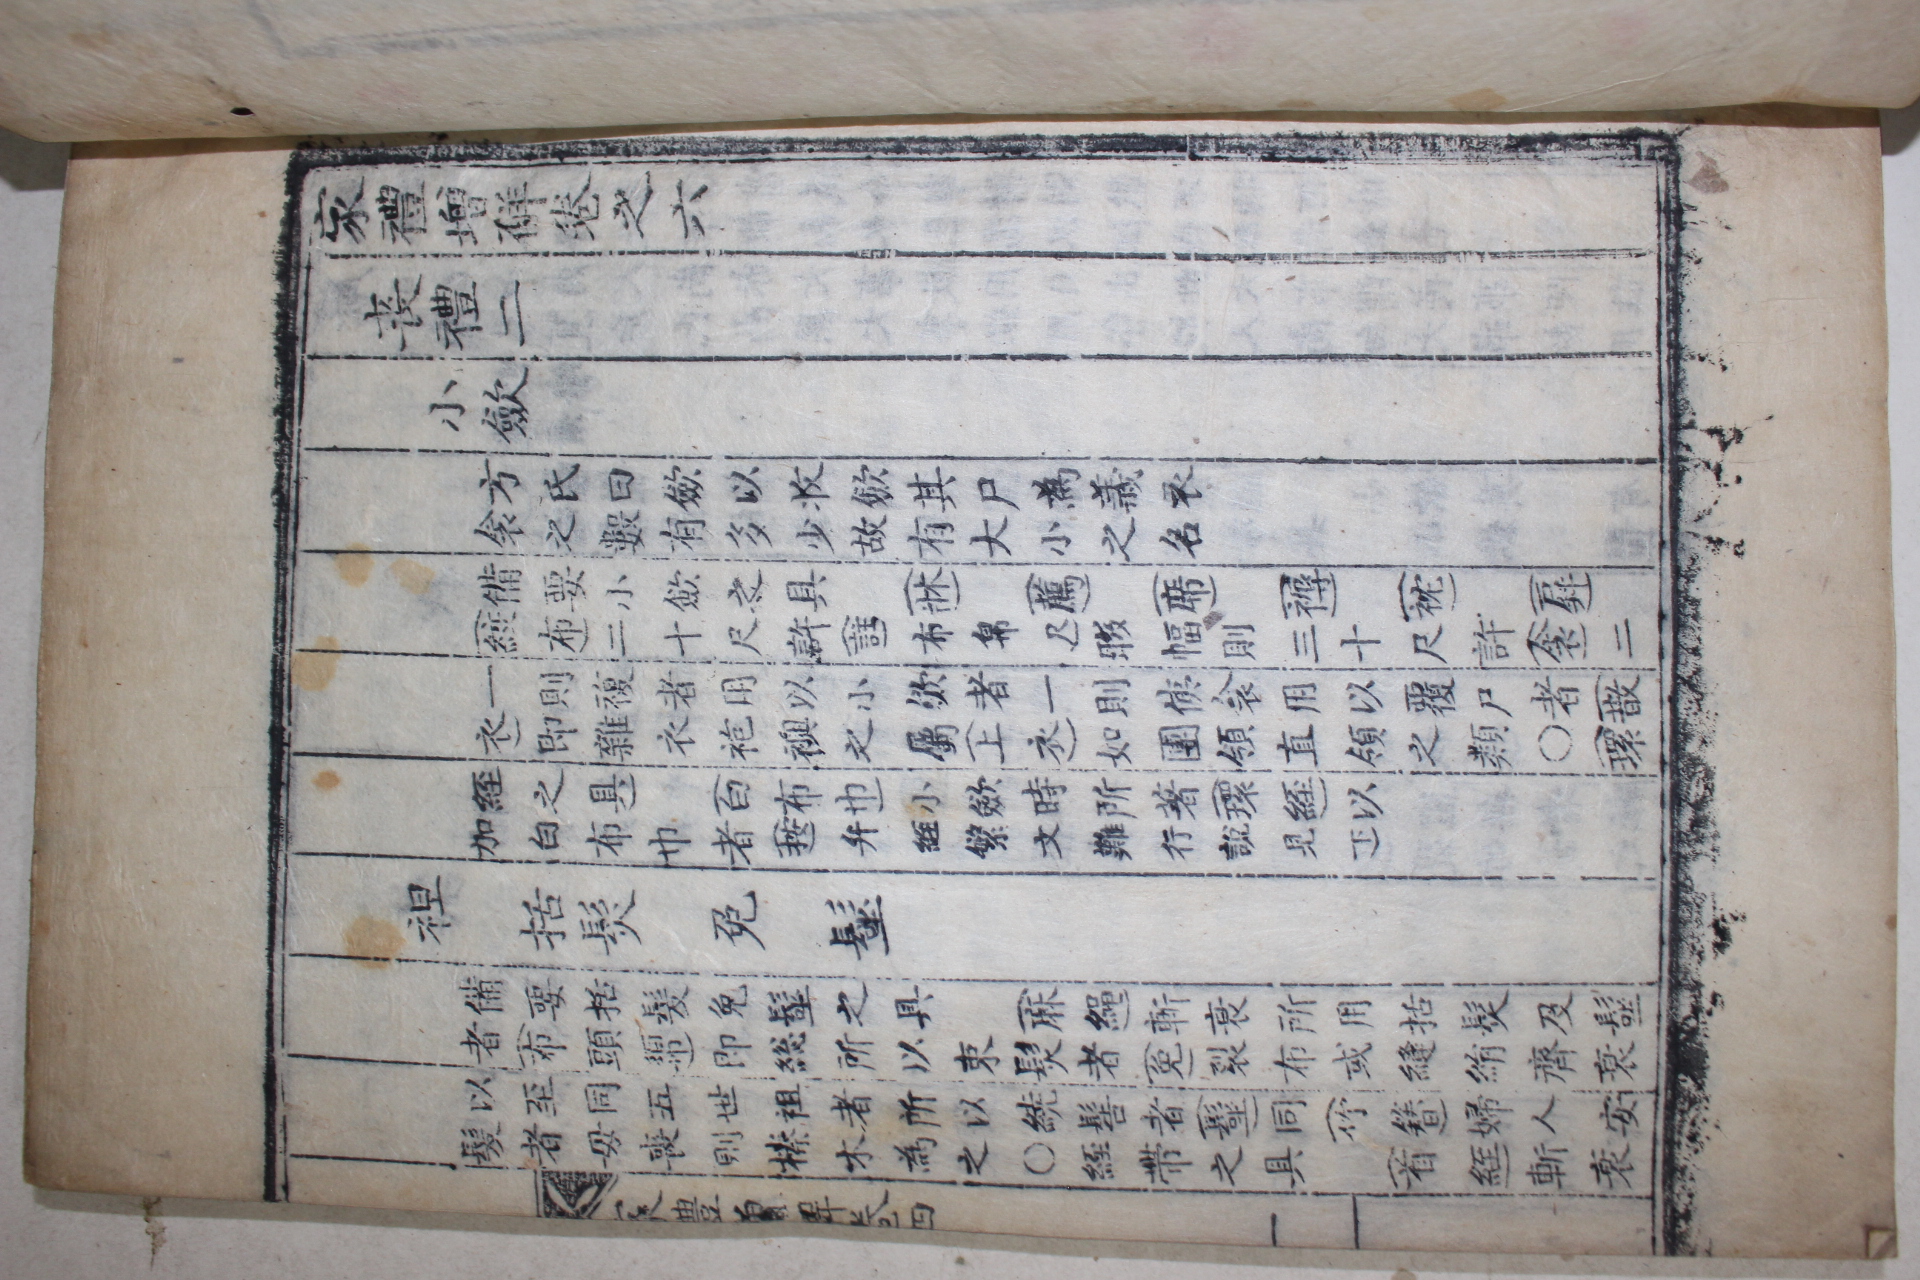 家禮增解卷之六
喪禮二
小歛
方氏曰歛以收歛其尸爲義衣
衾之數有多少故有大小之名
備要小歛之具(牀)(薦)(席)(褥)(枕)(屛)
(絞布)二十尺許(註)布帛尺聯幅則三十尺許(衾)二
一則複者用以小歛者一則俠衾用以覆尸者(散
衣)即雜衣袍襖之屬(上衣)如團領直領之類〇(環
絰之具)(白布巾)小歛時所著(環絰)以
加白布巾者(按)弁絰繁文難行說見下
袒 括髮 免 髽
備要括髮免髽之具(麻繩)斬衰所用括髮及髽
者(布頭𢄼)即總所以束髮者(免)裂布或縫絹齊衰
以至同五世祖者所以繞髻者(髽)同(竹簪)婦人安
髮者毋喪則榛木為之〇絰帶之具(首絰)斬衰
家禮增解卷四
一